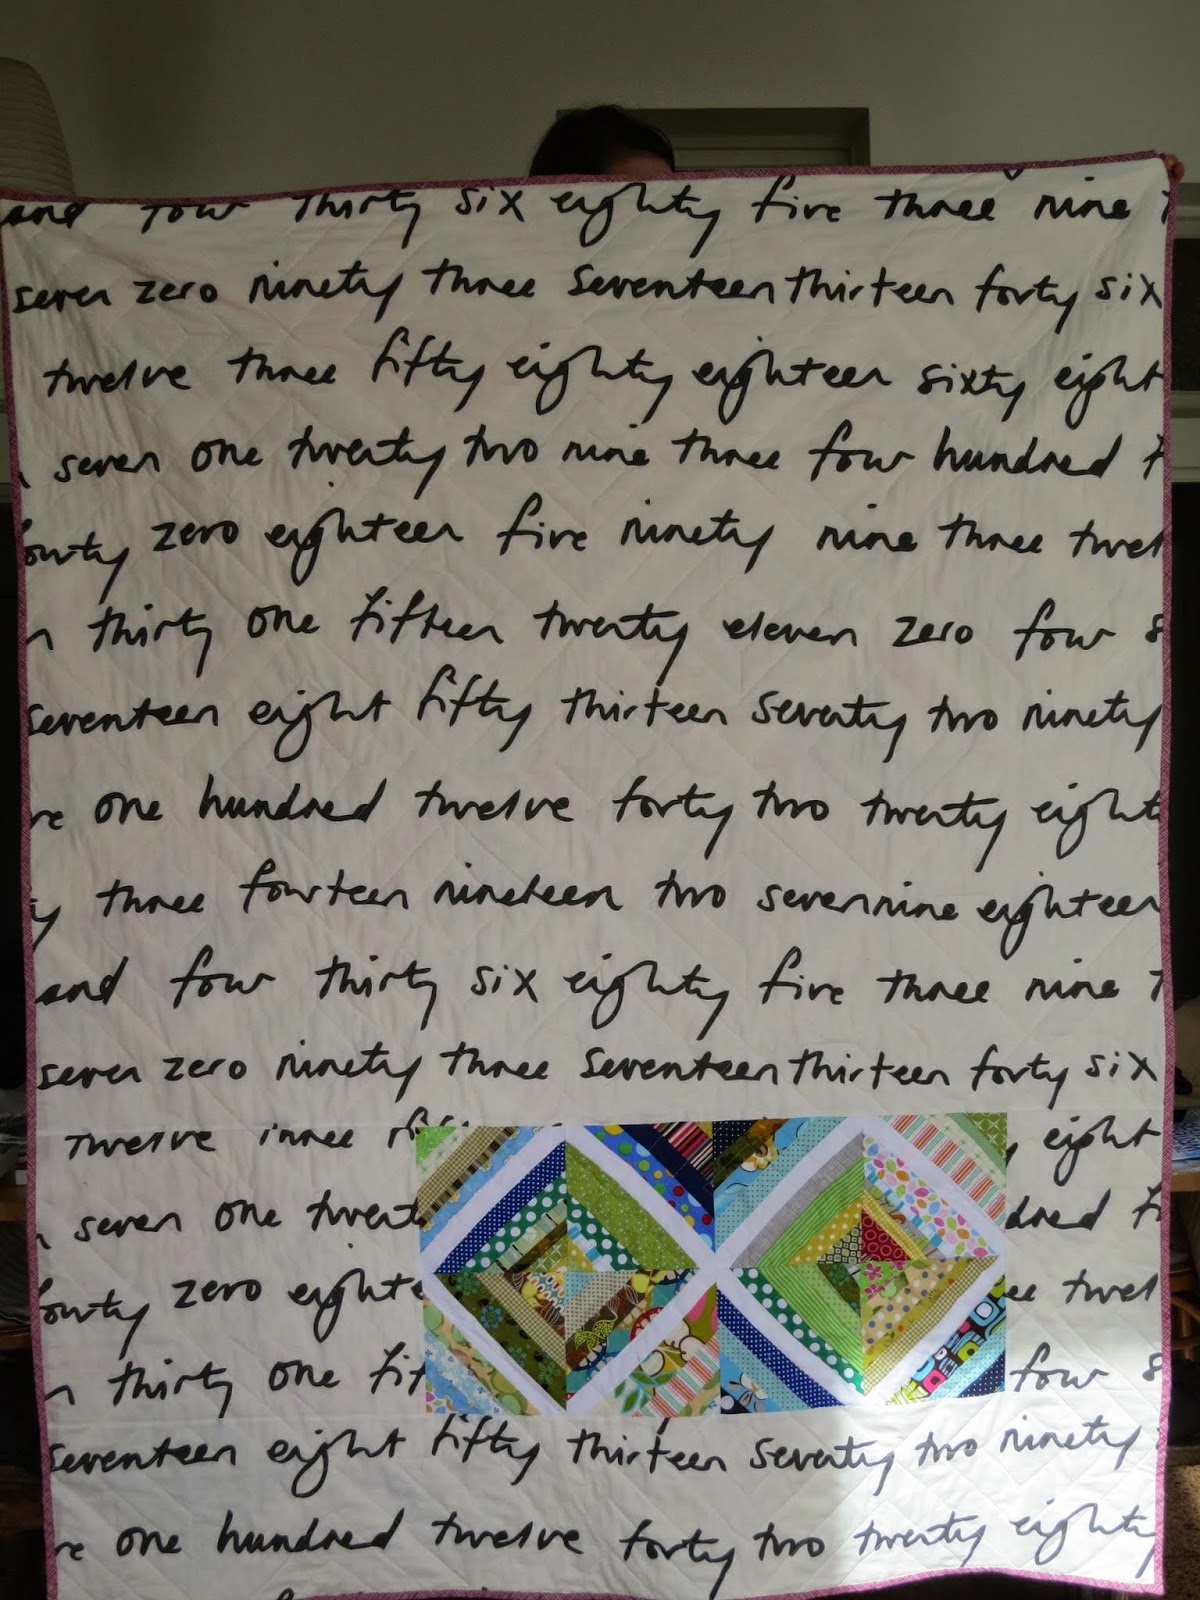 and four thirty six eighty five three nine
seven zero ninety three seventeen thirteen forty six
twelve three fifty eighty eighteen sixty eight
seven one twenty two nine three four hundred
forty zero eighteen five ninety nine three twel
thirty one fifteen twenty eleven zero four
seventeen eight fifty thirteen seventy two ninety
one hundred twelve forty two twenty eight
three fourteen nineteen two seven nine eighteen
and four thirty six eighty five three nine
seven zero ninety three seventeen thirteen forty six
twelve eight
seven one twent dred
forty zero eighte ee twel
thirty one fif four
seventeen eight fifty thirteen seventy two ninety
one hundred twelve forty two twenty eighty